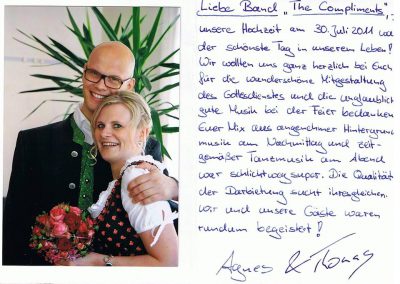 Liebe Band "The Compliments",
unsere Hochzeit am 30. Juli 2011 war
der schönste Tag in unserem Leben!
Wir wollten uns ganz herzlich bei Euch
für die wunderschöne Mitgestaltung
des Gottesdienstes und die unglaublich
gute Musik bei der Feier bedanken.
Euer Mix aus angenehmer Hintergrund-
musik am Nachmittag und zeit-
gemäßer Tanzmusik am Abend
war schlichtweg super. Die Qualität
der Darbietung sucht ihresgleichen.
Wir und unsere Gäste waren
rundum begeistert!
Agnes & Thomas